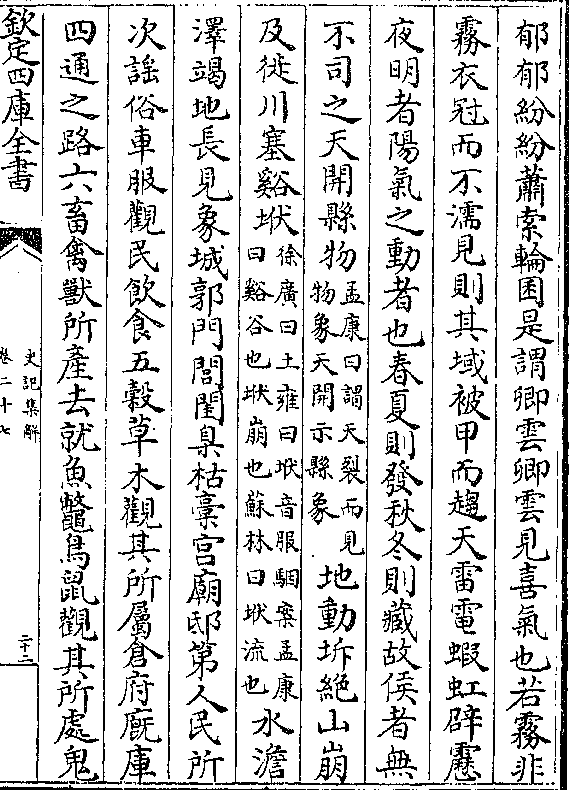 郁郁紛紛蕭索輪囷是謂卿雲卿雲見喜氣也若霧非
霧衣冠而不濡見則其域被甲而趨天雷電蝦虹辟靂
夜明者陽氣之動者也春夏則發秋冬則藏故侯者無
不司之天開縣物孟康曰謂天裂而見物象天開示縣象地動坼絶山崩
及徙川塞谿垘徐廣曰土雍曰垘音服駰案孟康曰谿谷也垘崩也蘇林曰垘流也水澹
澤竭地長見象城郭門閭閨臬枯藁宫廟邸第人民所
次謡俗車服觀民飲食五榖草木觀其所屬倉府廐庫
四通之路六畜禽獸所產去就魚鼈鳥鼠觀其所處鬼
欽定四庫全書
史記集解
卷二十七
二十二